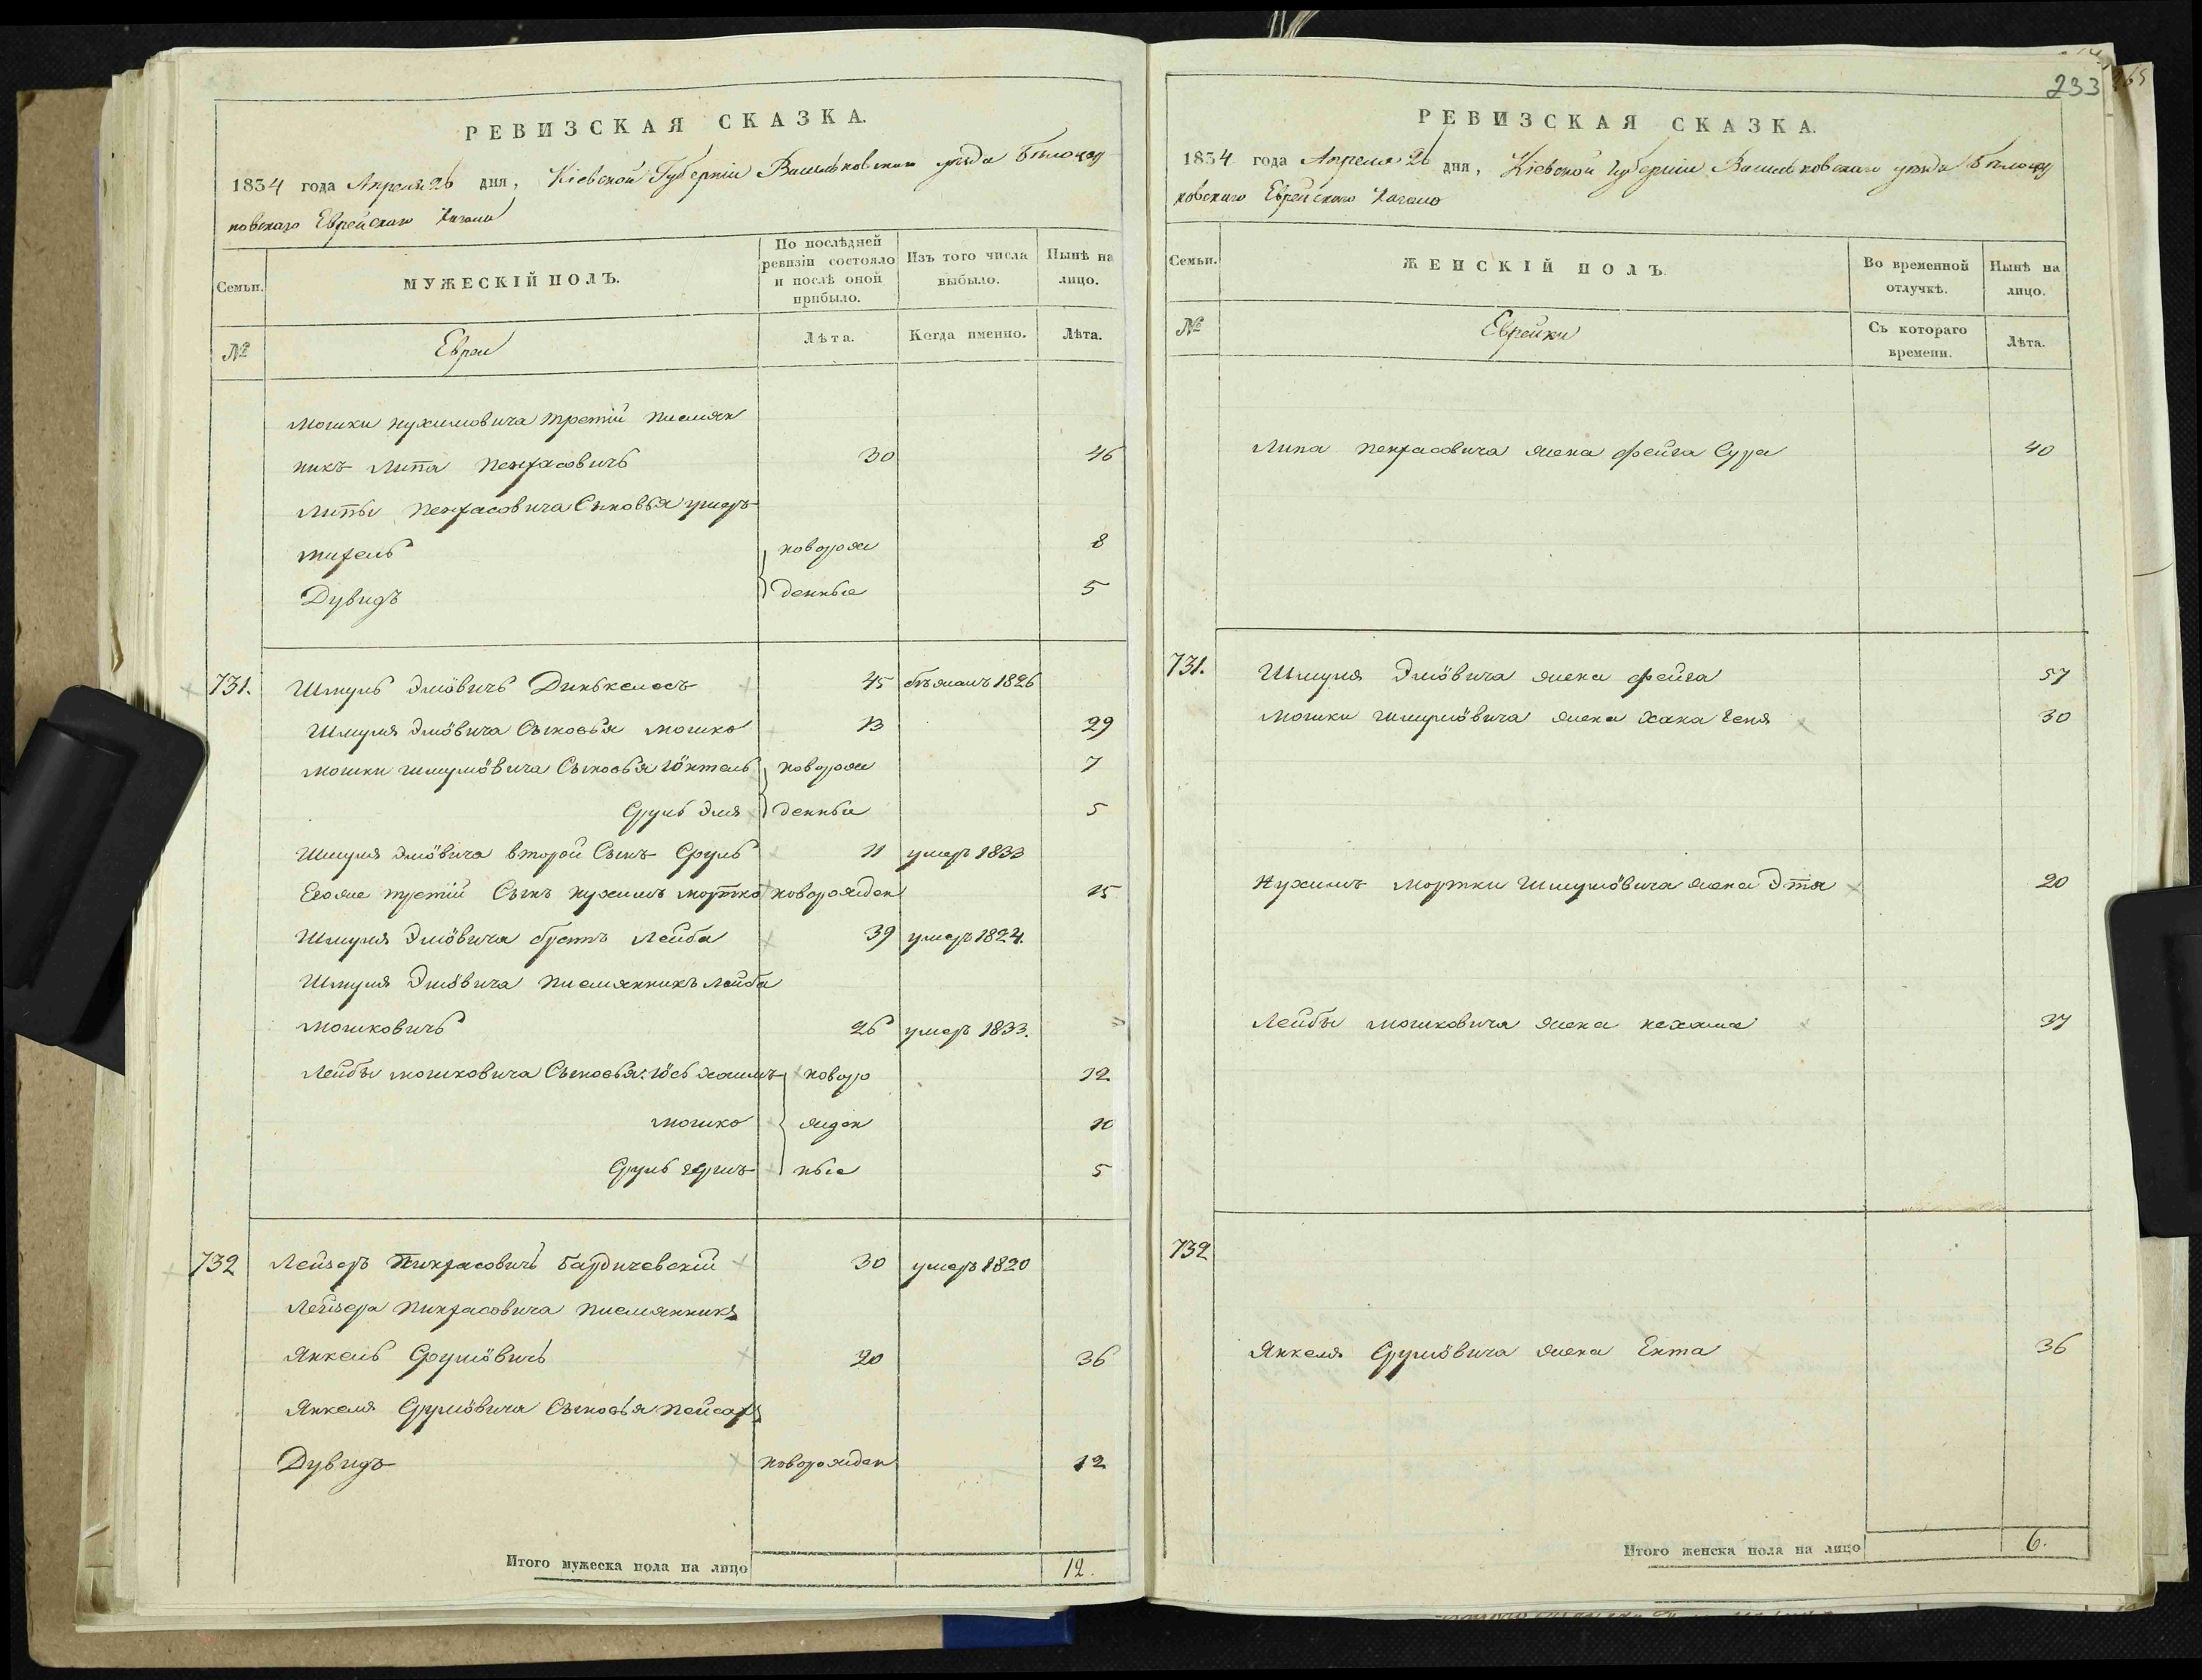 РЕВИЗСКАЯ СКАЗКА.
1834 года Апреля 26 дня, Кіевской Губерніи Васильковскаго уезда Белоцер
ковскаго Еврейскаго Кагала
Семьи.
МУЖЕСКІЙ ПОЛЪ.
По послѣдней ревизіи состояло и послѣ оной прибыло.
Изъ того числа выбыло.
Нынѣ на лицо.
№
Евреи
Лѣта.
Когда именно.
Лѣта.
Мошки Нухимовича третій племян
никъ Липа Пенхасовичъ 30 46
Липы Пенхасовича Сыновья
новорож 8
Дувидъ денные 5
731. Шмуль Элiовичъ 45 бѣжалъ 1826
Шмуля Элiовича Сыновья Мошко 13 29
Мошки Шмулiовича Сыновья Iонтель новорож 7
Сруль Эля денные 5
Шмуля Элiовича второй Сынъ Сруль 11 умеръ 1833
Егоже третій Сынъ Нухимъ Мортко новорожден 15
Шмуля Элiовича братъ Лейба 39 умеръ 1824.
Шмуля Элiовича племянникъ Лейба
Мошковичъ 26 умеръ 1833.
Лейбы Мошковича Сыновья: Iось Хаимъ новоро 12
Мошко жден 10
Сруль Гершъ ные 5
732 Лейзеръ Пинхасовичъ Бардичевскій 30 умеръ 1820
Лейзера Пинхасовича племянникъ
Янкель Срулiовичъ 20 36
Янкеля Срулiовича Сыновья Пейсахъ
Дувидъ новорожден 12
Итого мужеска пола на лицо 12.
233
265
РЕВИЗСКАЯ СКАЗКА.
1834 года Апреля 26 дня, Кіевской Губерніи Васильковскаго уезда Белоцер
ковскаго Еврейскаго Кагала
Семьи.
ЖЕНСКІЙ ПОЛЪ.
Во временной отлучкѣ.
Нынѣ на лицо.
№
Еврейки
Съ котораго времени.
Лѣта.
Липа Пенхасовича жена Фейга Сура 40
731. Шмуля Элiовича жена Фейга 57
Мошки Шмулiовича жена Хана Геня 30
Нухимъ Мортки Шмулiовича жена Этя 20
Лейбы Мошковича жена Нехама 37
732
Янкеля Срулiовича жена Ента 36
Итого женска пола на лицо 6.